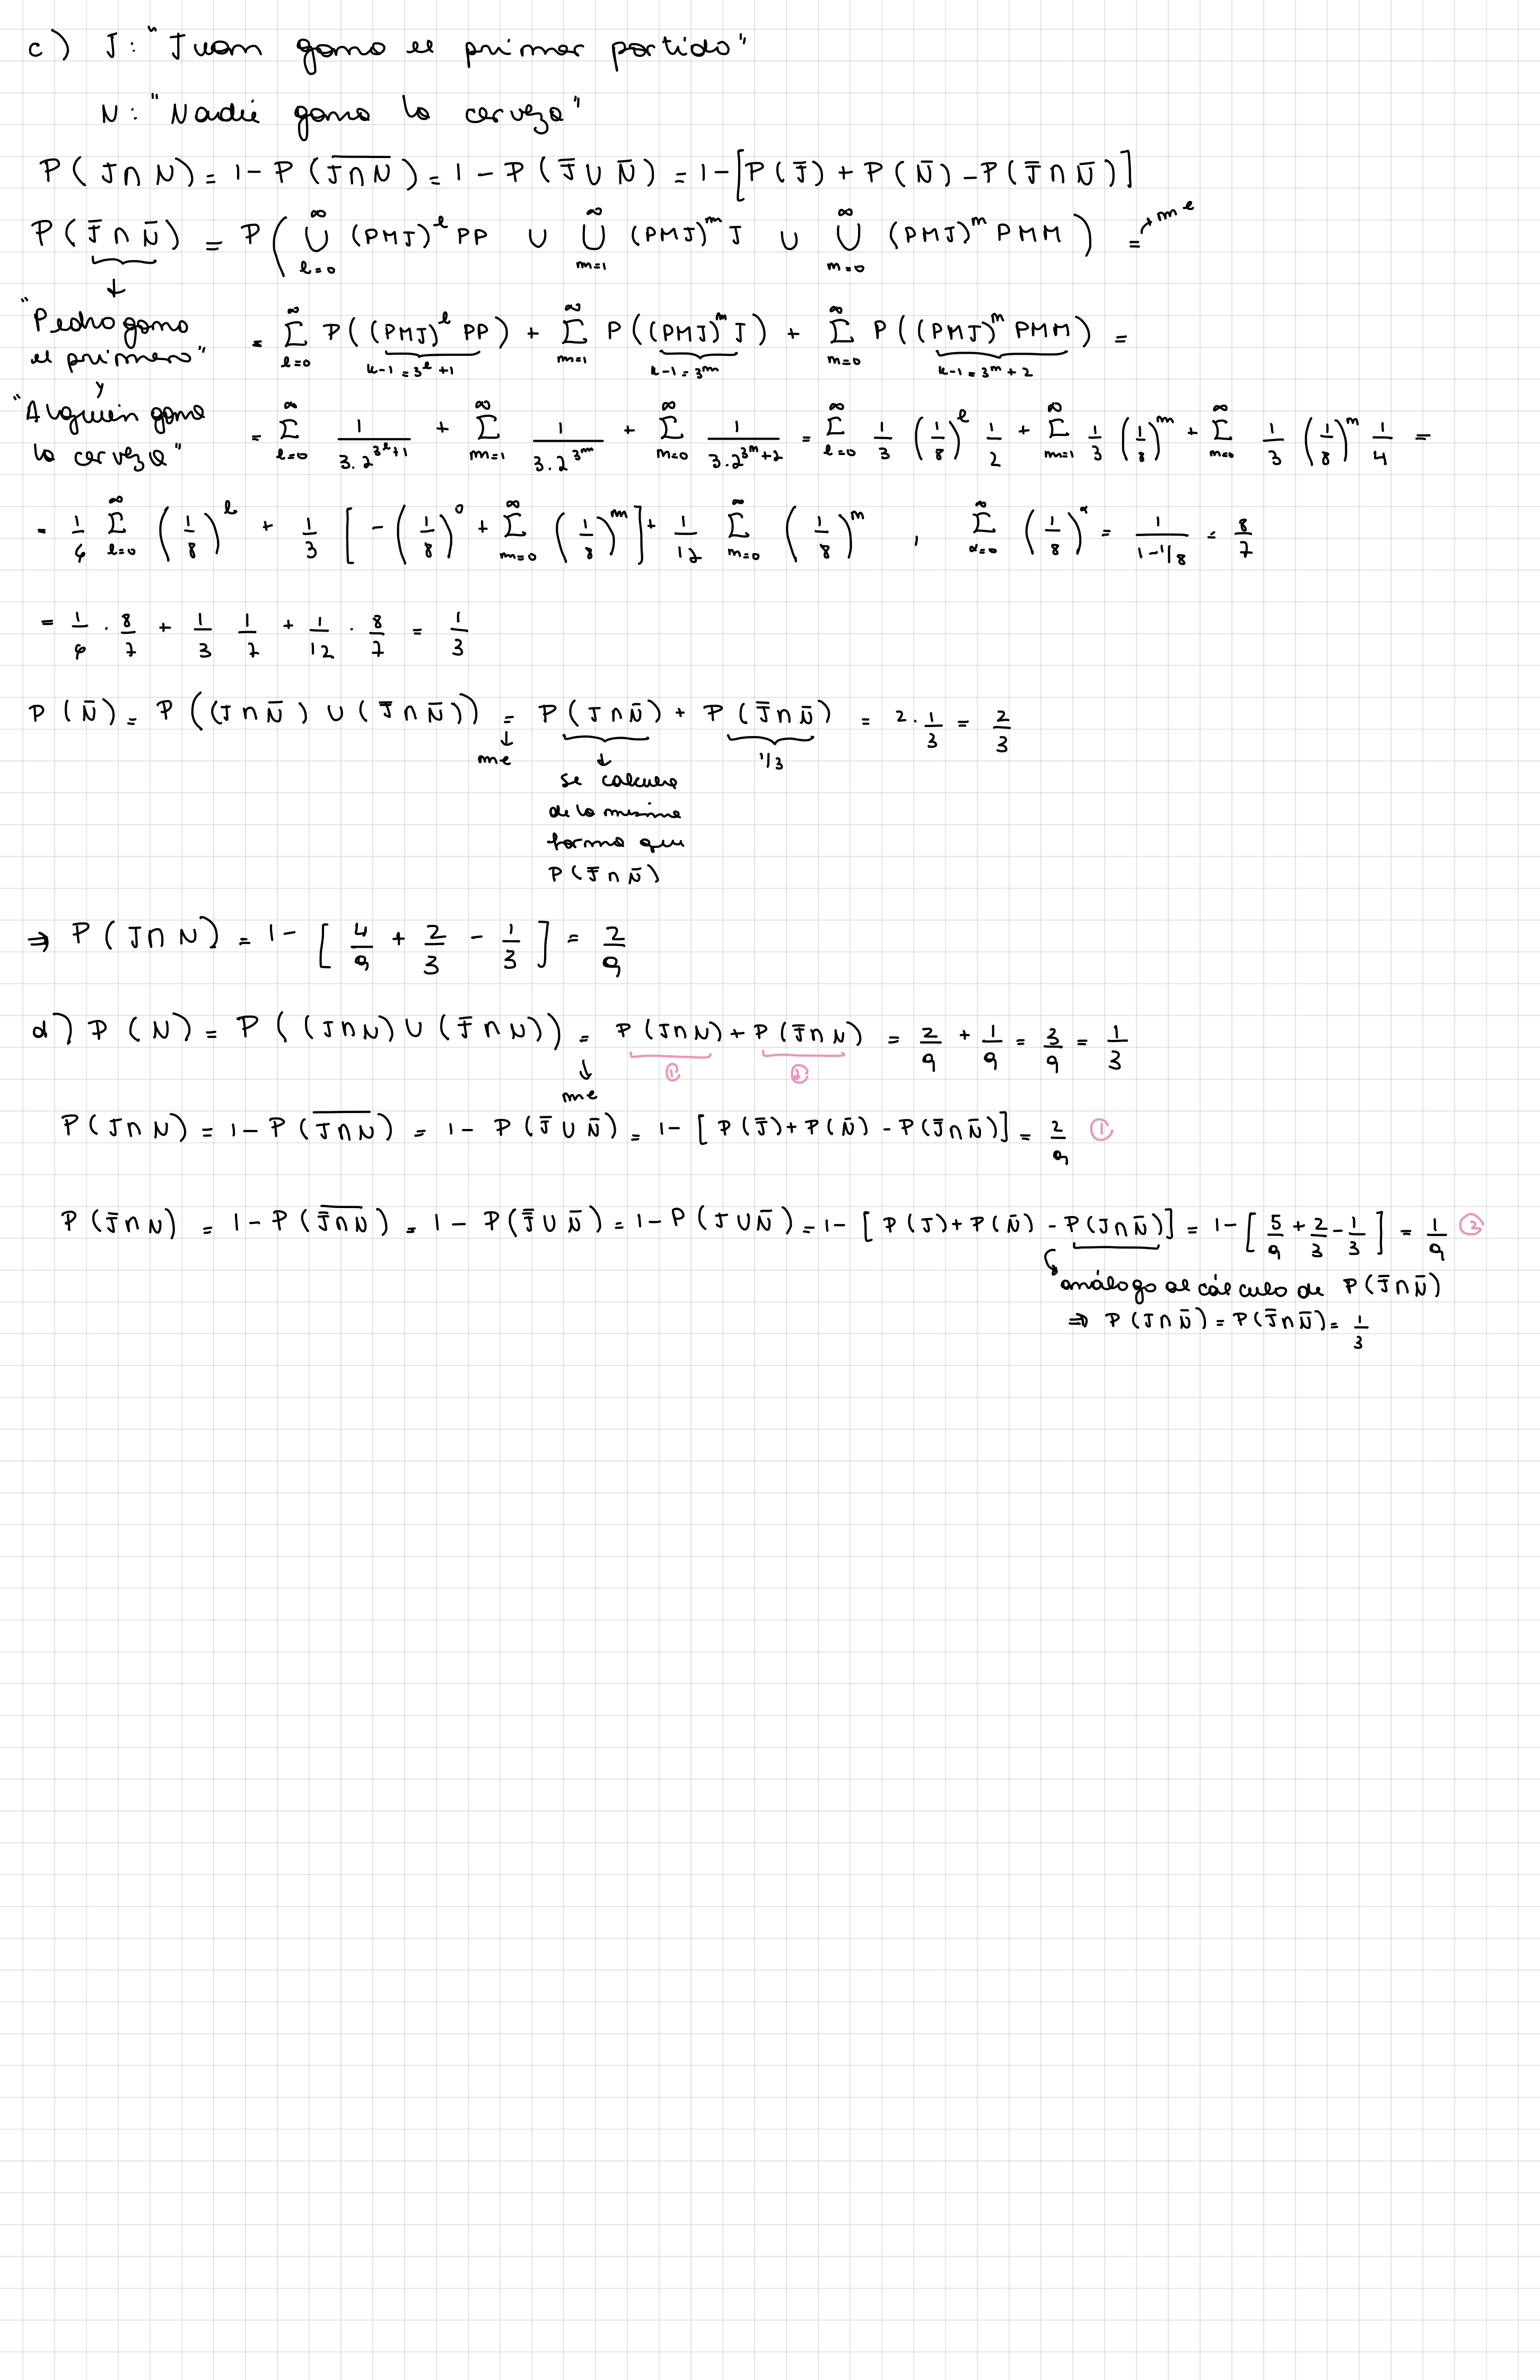 c) J: "Juan gana el primer partido"
N: "Nadie gana la cerveza"
P(J∩N) = 1 - P(\overline{J∩N}) = 1 - P(J̄ ∪ N̄) = 1 - [P(J̄) + P(N̄) - P(J̄ ∩ N̄)]
P(J̄ ∩ N̄) = P( ⋃_{l=0}^{∞} (PMJ)^l PP ∪ ⋃_{m=1}^{∞} (PMJ)^m J ∪ ⋃_{m=0}^{∞} (PMJ)^m PMM ) = → me
↓
"Pedro gana el primero" y "Alguien gana la cerveza"
= Σ_{l=0}^{∞} P((PMJ)^l PP) + Σ_{m=1}^{∞} P((PMJ)^m J) + Σ_{m=0}^{∞} P((PMJ)^m PMM) =
k-1=3^l+1 k-1=3^m k-1=3^m+2
= Σ_{l=0}^{∞} 1/(3.2^{3^l+1}) + Σ_{m=1}^{∞} 1/(3.2^{3^m}) + Σ_{m=0}^{∞} 1/(3.2^{3^m+2}) = Σ_{l=0}^{∞} 1/3 (1/8)^l 1/2 + Σ_{m=1}^{∞} 1/3 (1/8)^m + Σ_{m=0}^{∞} 1/3 (1/8)^m 1/4 =
= 1/6 Σ_{l=0}^{∞} (1/8)^l + 1/3 [ -(1/8)^0 + Σ_{m=0}^{∞} (1/8)^m ] + 1/12 Σ_{m=0}^{∞} (1/8)^m , Σ_{α=0}^{∞} (1/8)^α = 1/(1-1/8) = 8/7
= 1/6 . 8/7 + 1/3 1/7 + 1/12 . 8/7 = 1/3
P(N̄) = P((J∩N̄) ∪ (J̄∩N̄)) = P(J∩N̄) + P(J̄∩N̄) = 2.1/3 = 2/3
↓ me ↓ 1/3
se calcula
de la misma
forma que
P(J̄∩N̄)
⇒ P(J∩N) = 1 - [ 4/9 + 2/3 - 1/3 ] = 2/9
d) P(N) = P((J∩N) ∪ (J̄∩N)) = P(J∩N) + P(J̄∩N) = 2/9 + 1/9 = 3/9 = 1/3
↓ me ① ②
P(J∩N) = 1 - P(\overline{J∩N}) = 1 - P(J̄ ∪ N̄) = 1 - [P(J̄) + P(N̄) - P(J̄∩N̄)] = 2/9 ①
P(J̄∩N) = 1 - P(\overline{J̄∩N}) = 1 - P(J̿ ∪ N̄) = 1 - P(J ∪ N̄) = 1 - [P(J) + P(N̄) - P(J∩N̄)] = 1 - [5/9 + 2/3 - 1/3] = 1/9 ②
análogo al cálculo de P(J̄∩N̄)
⇒ P(J∩N̄) = P(J̄∩N̄) = 1/3